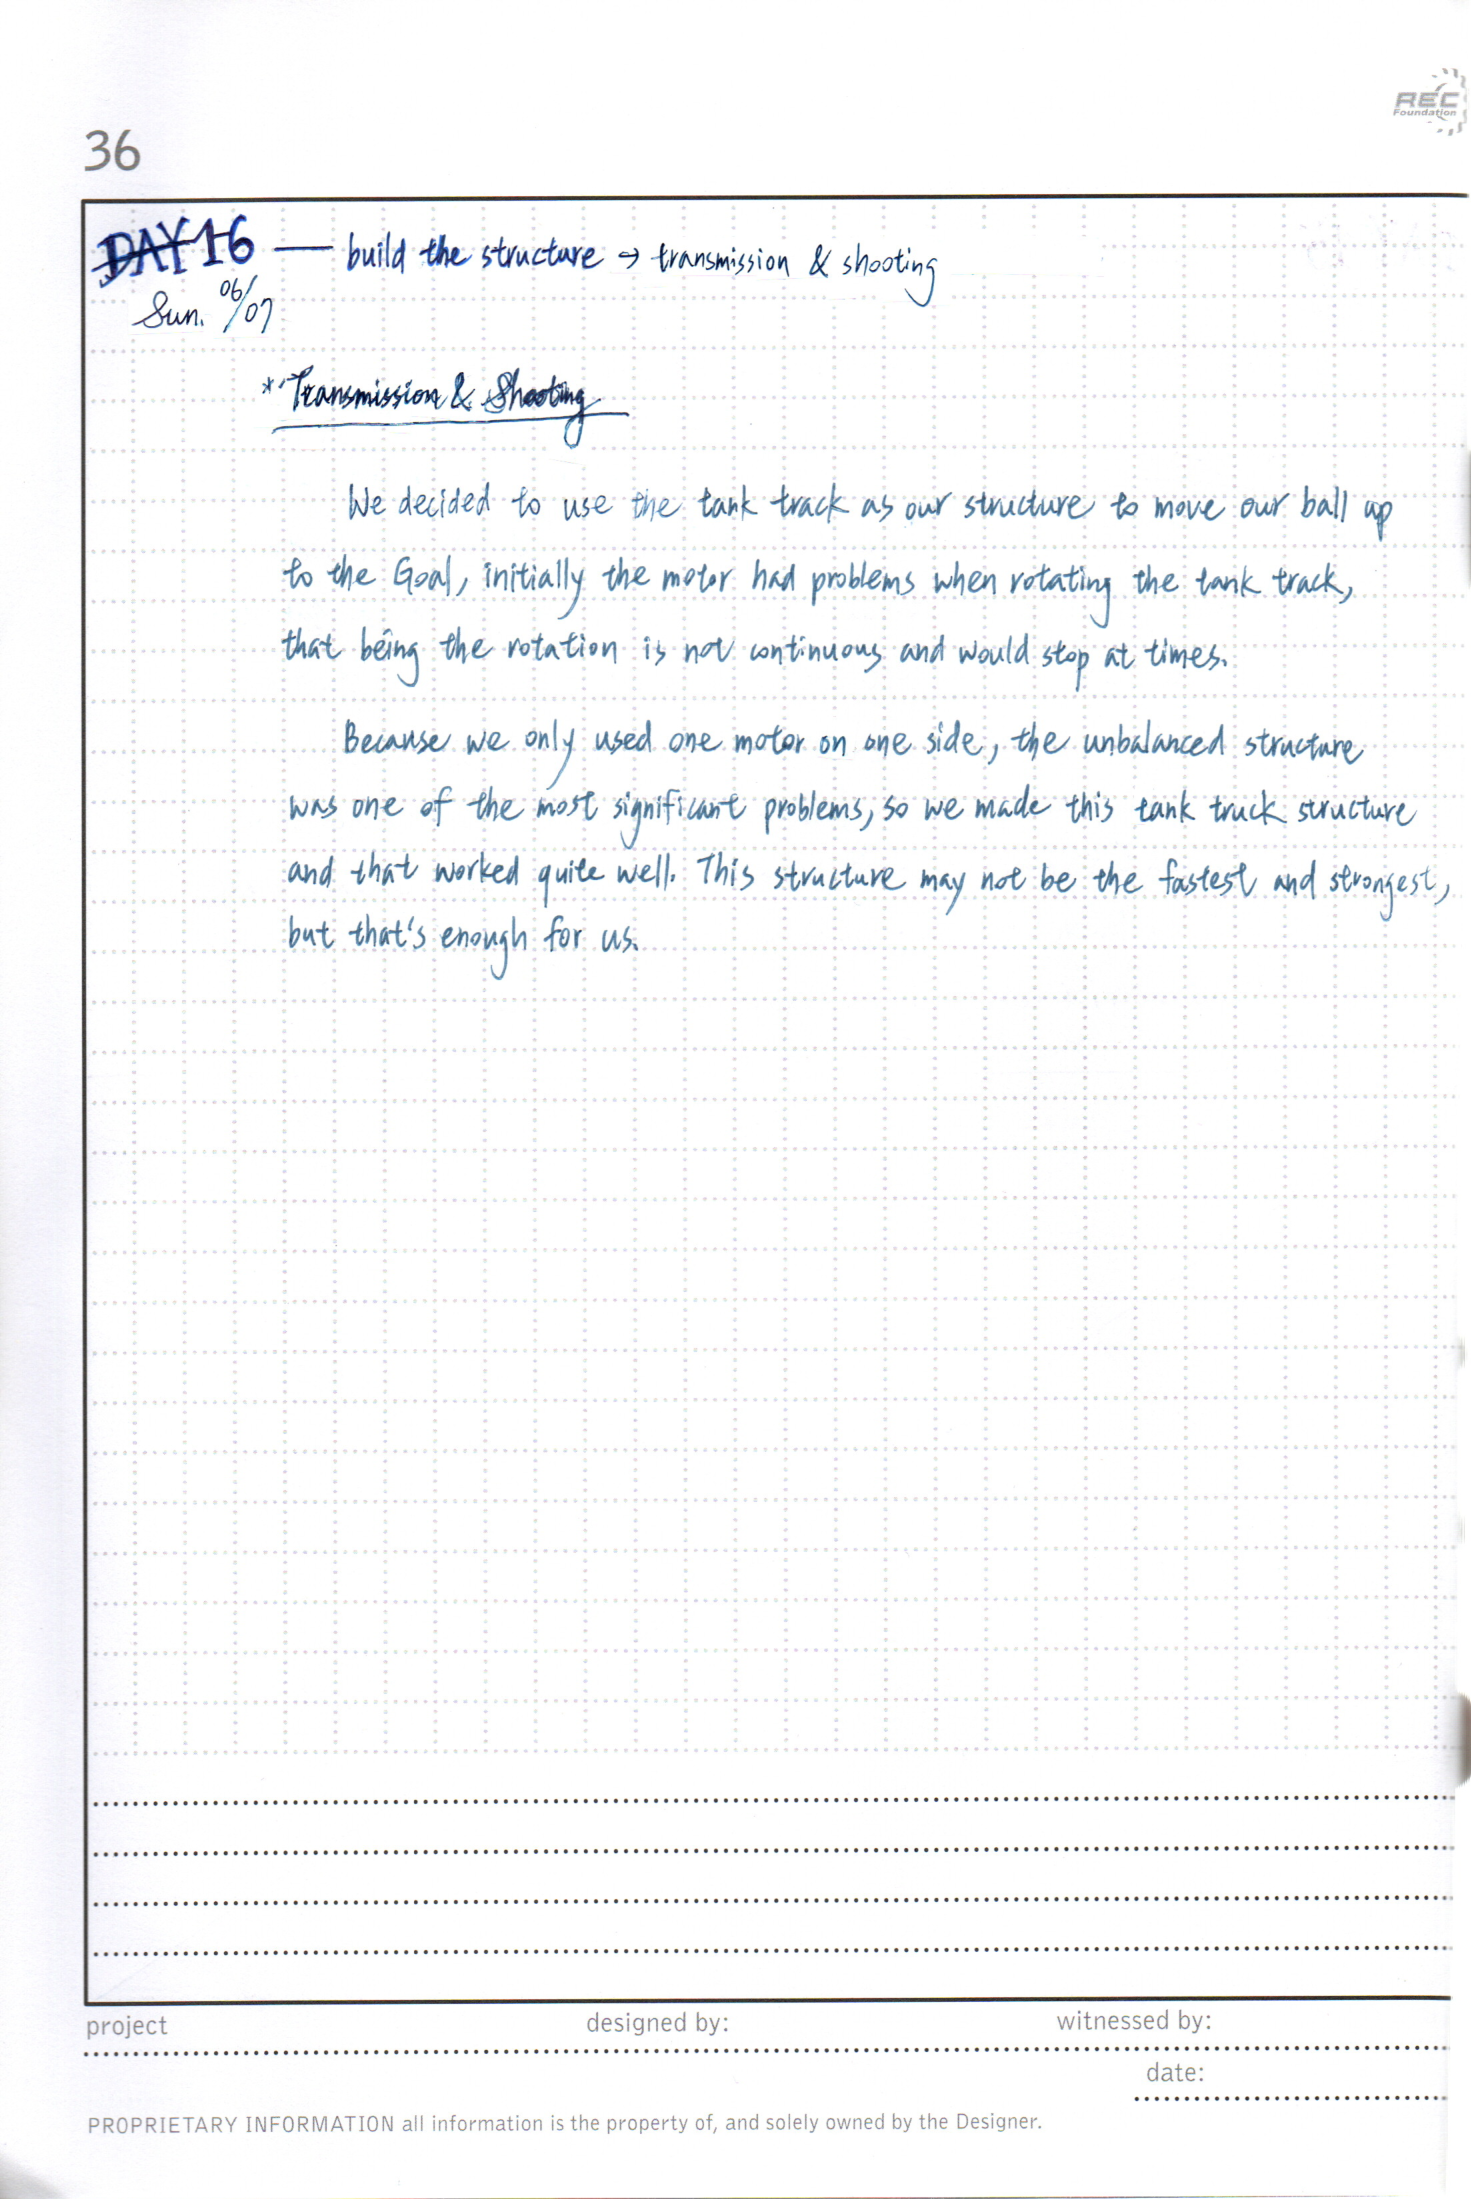 REC
Foundation
36
DAY 16 — build the structure → transmission & shooting
Sun. 06/07
* Transmission & Shooting
We decided to use the tank track as our structure to move our ball up
to the Goal, initially the motor had problems when rotating the tank track,
that being the rotation is not continuous and would stop at times.
Because we only used one motor on one side, the unbalanced structure
was one of the most significant problems, so we made this tank truck structure
and that worked quite well. This structure may not be the fastest and strongest,
but that's enough for us.
project designed by: witnessed by:
date:
PROPRIETARY INFORMATION all information is the property of, and solely owned by the Designer.